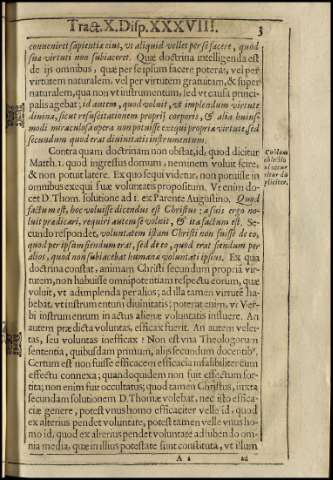 Tract. X. Disp. XXXVIII. 3
conveniret sapientiæ eius, vt aliquid vellet per se facere, quod
suæ virtuti non subiaceret. Quæ doctrina intelligenda est
de ijs omnibus, quæ per se ipsum facere poterat, vel per
virtutem naturalem, vel per virtutem gratuitam, & super
naturalem, qua non vt instrumentum, sed vt causa princi-
palis agebat; id autem, quod voluit, vt implendum virtute
diuina, sicut resuscitationem proprij corporis, & alia huius-
modi miraculosa opera non potuisse exequi propria virtute, sed
secundum quod erat diuinitatis instrumentum.
Contra quam doctrinam non obstat, id, quod dicitur
Matth. 1. quod ingressus domum, neminem voluit scire,
& non potuit latere. Ex quo sequi videtur, non potuisse in
omnibus exequi suæ voluntatis propositum. Vt enim do-
cet D. Thom. solutione ad 1. ex Parente Augustino. Quod
factum est, hoc voluisse dicendus est Christus; a suis ergo no-
luit prædicari, requiri autem se voluit, & ita factum est. Se-
cundo respondet, voluntatem istam Christi non fuisse de eo,
quod per ipsum fiendum erat, sed de eo, quod erat fiendum per
alios, quod non subiacebat humanæ voluntati ipsius. Ex qua
doctrina constat, animam Christi secundum propriā vir-
tutem, non habuisse omnipotentiam respectu eorum, quæ
voluit, vt adimplenda per alios; ad illa tamen virtute ha-
bebat, vt instrumentum diuinitatis; poterat enim, vt Ver-
bi instrumentum in actus alienæ voluntatis influere. An
autem prædicta voluntas, efficax fuerit. An autem velei-
tas, seu voluntas inefficax? Non est vna Theologorum
sententia, quibusdam primum, alijs secundum docentibꝰ.
Certum est non fuisse efficacem efficacia infalibiliter cum
effectu connexa; quandoquidem non fuit effectum sor-
tita; non enim fuit occultatus; quod tamen Christus, iuxta
secundam solutionem D. Thomæ volebat, nec isto effica-
ciæ genere, potest vnus homo efficaciter velle id, quod
ex alterius pendet voluntate, potest tamen velle vnus ho-
mo id, quod ex alterius pendet voluntate adhibendo om-
nia media, quæ in illius potestate sunt constituta, vt illum
A 2